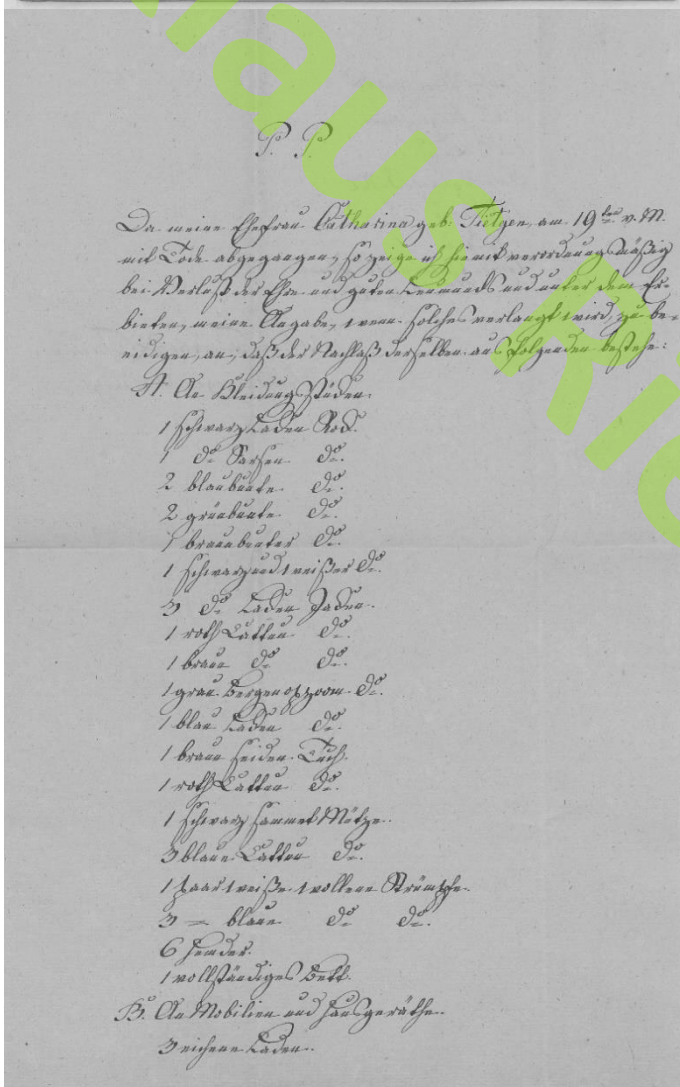 P. P.
Da meine Ehefrau Catharina geb. Tietgen, am 19ten v. M.
mit Tode abgegangen, so zeige ich hiemit verordnungsmäßig
bei Verlust der Ehre und guten Leumunds und unter dem Er-
bieten, meine Angabe, wenn solches verlangt wird, zu be-
eidigen, an, daß der Nachlaß derselben aus folgenden bestehe:
A. An Kleidungsstücken.
1 schwarz Laken Rock.
1 do Sarsen do.
2 blaubunte do.
2 grünbunte do.
1 braunbunter do.
1 schwarz und weißer do.
3 do Laken Jacken.
1 roth Cattun do.
1 braun do do.
1 grau Bergenopzoom do.
1 blau Laken do.
1 braun seiden Tuch.
1 roth Cattun do.
1 schwarz sammet Mütze.
3 blaue Cattun do.
1 paar weiße wollene Strümpfe.
3 = blaue do do.
6 Hemder.
1 vollständiges Bett.
B. An Mobilien und Hausgeräthe.
3 eichene Laden.
Klaus Rie